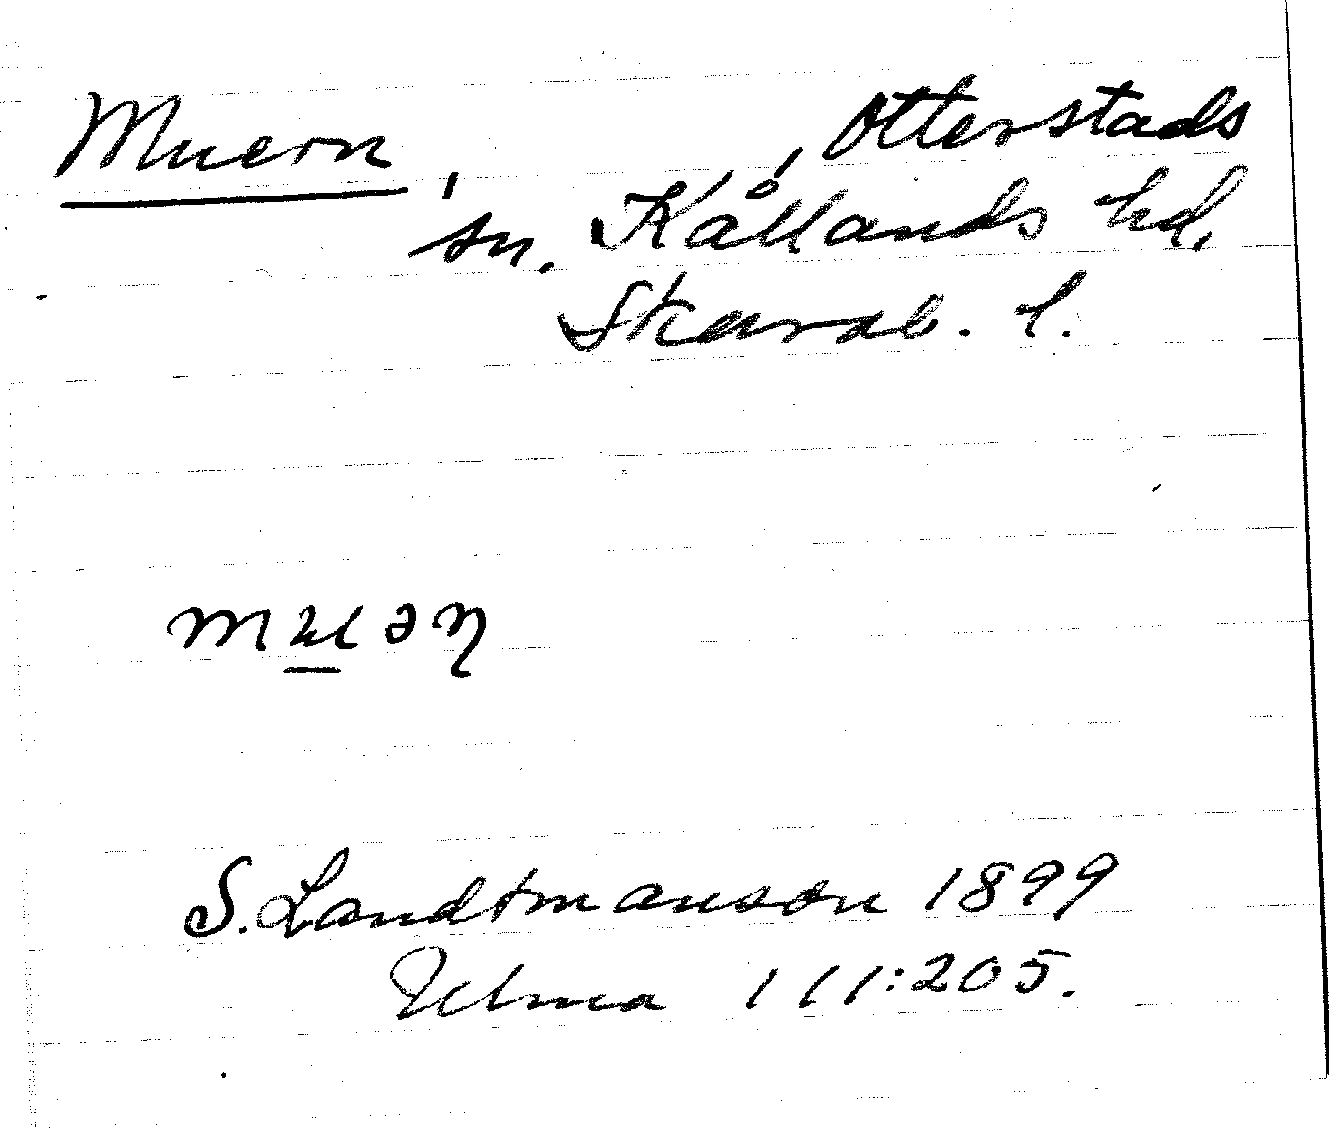 Muern, , Otterstads
sn. Kållands hd.
Skarab. l.
S. Landtmanson 1899
Ulma 111:205.